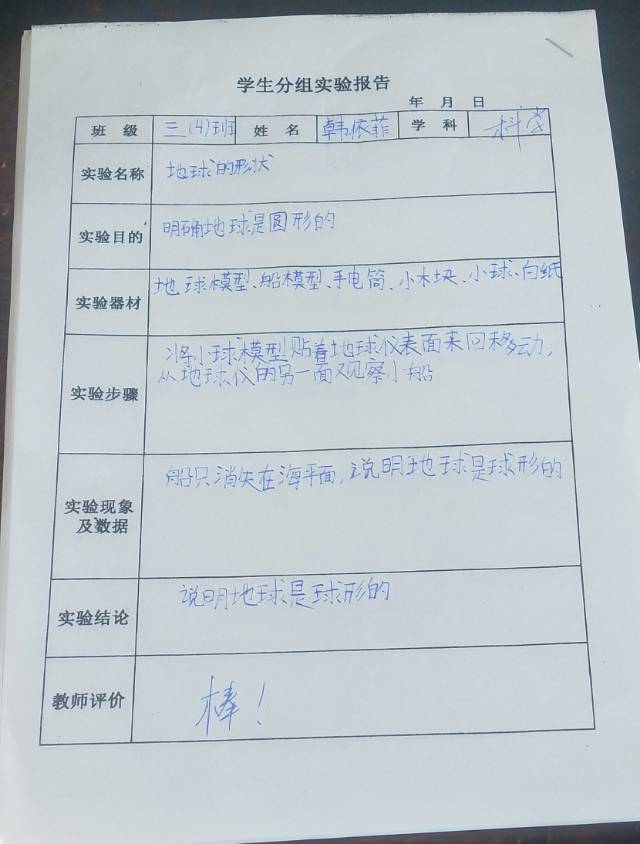 学生分组实验报告
年 月 日
班 级 三(4)班 姓 名 韩依菲 学 科 科学
实验名称 地球的形状
实验目的 明确地球是圆形的
实验器材 地球模型、船模型、手电筒、小木块、小球、白纸
实验步骤 将小球模型贴着地球仪表面来回移动,
从地球仪的另一面观察小船
实验现象
及数据 船只消失在海平面,说明地球是球形的
实验结论 说明地球是球形的
教师评价 棒!